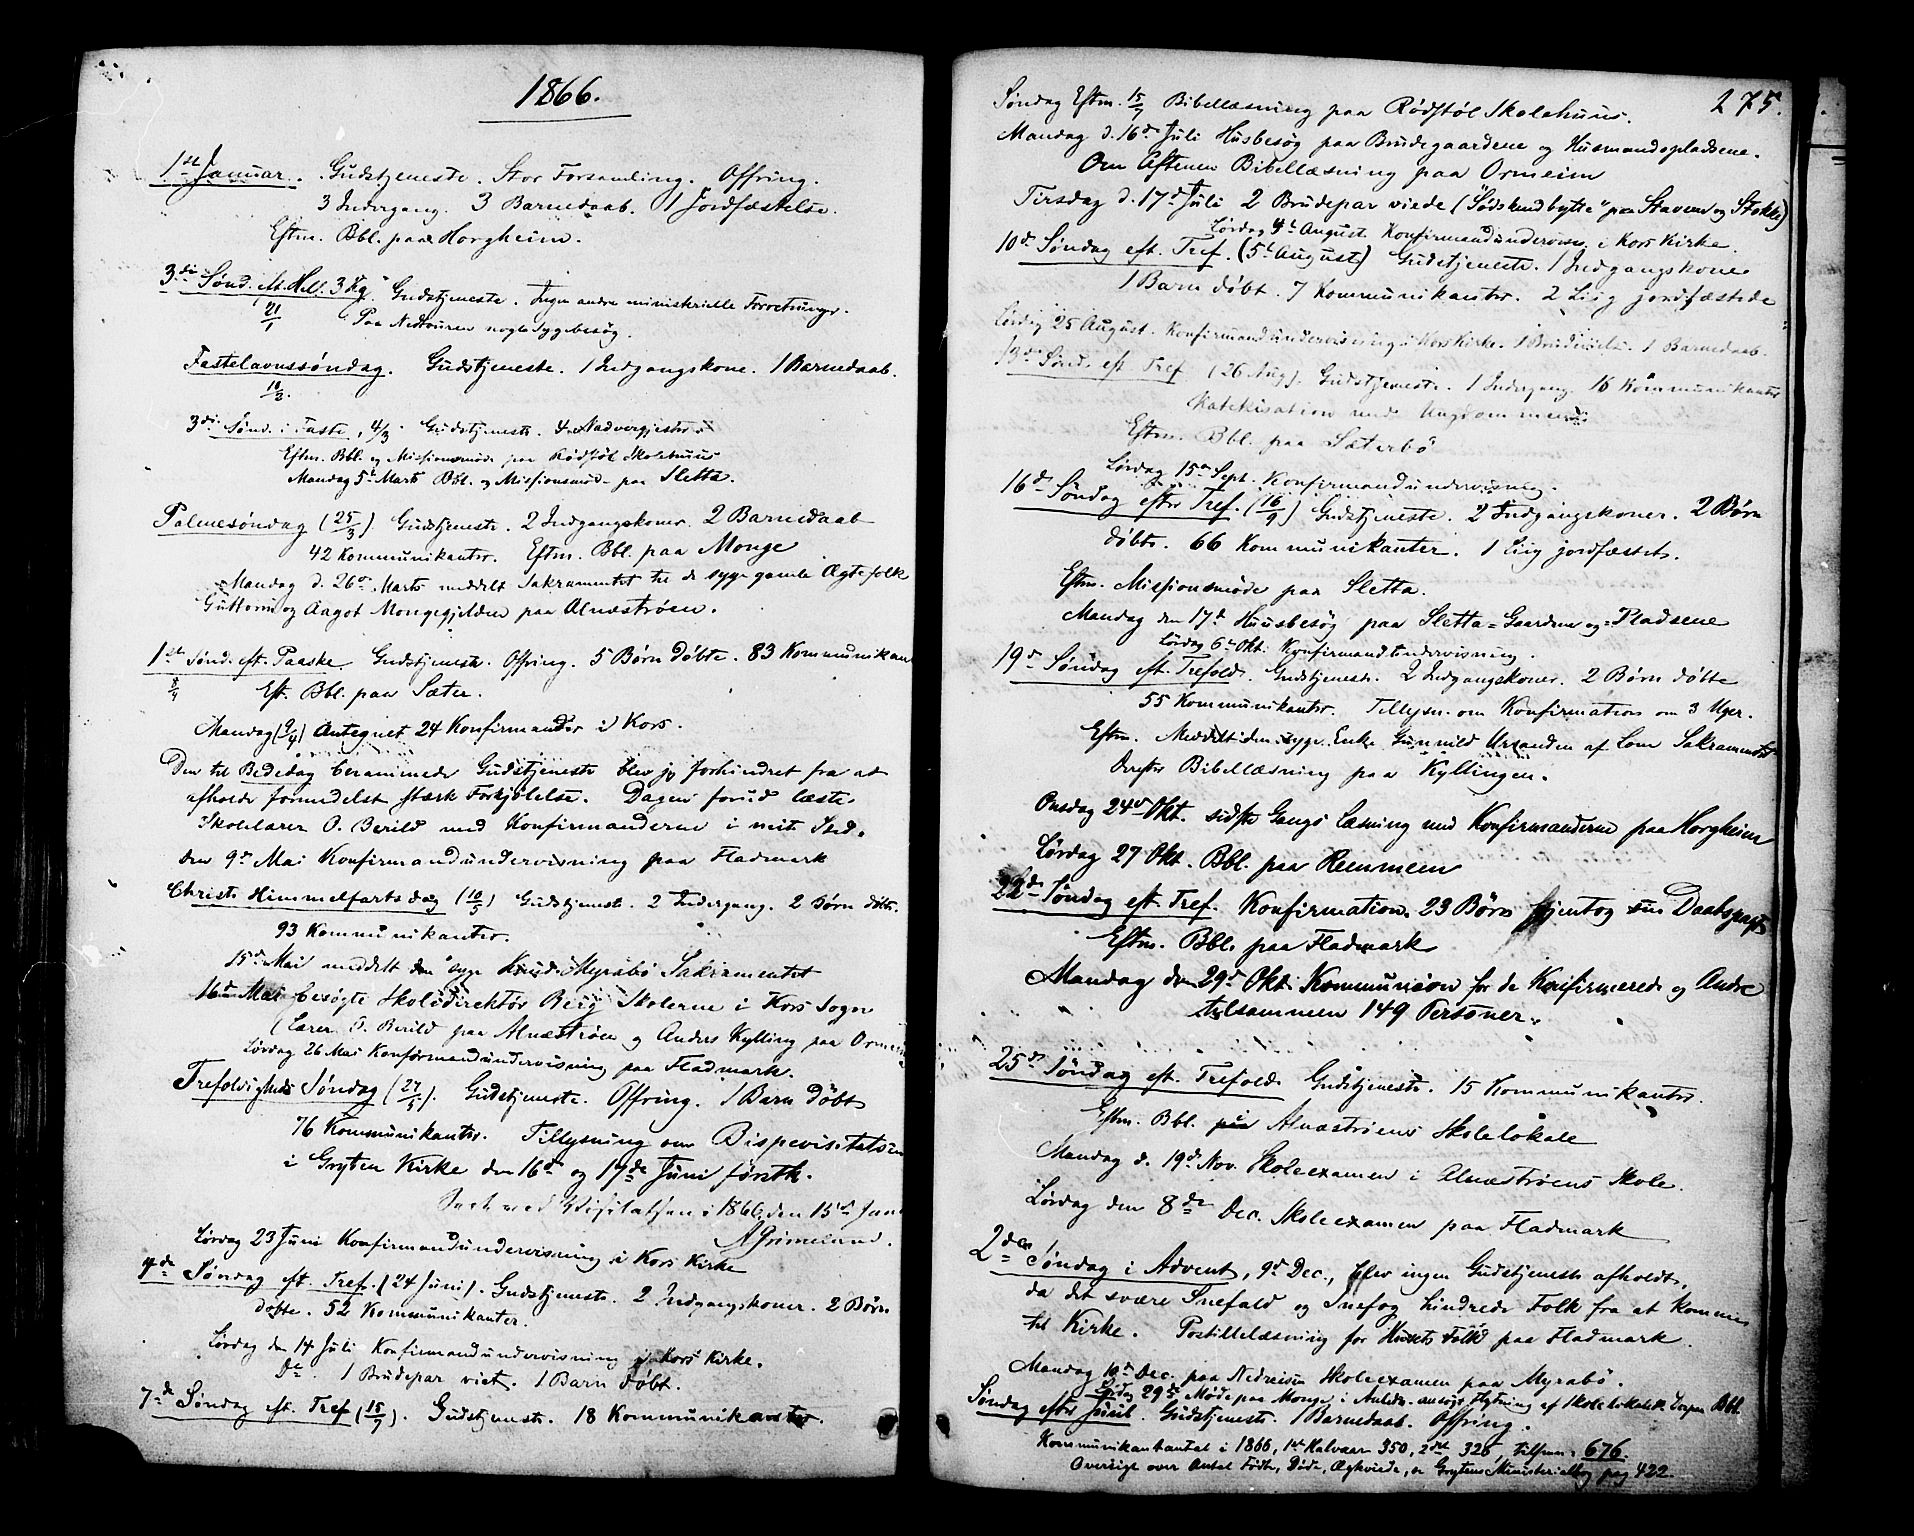 1866.
1st Januar. Gudstjeneste. Stor Forsamling. Offring.
3 Indgang. 3 Barnedaab. 1 Jordfæstelse.
Eftm. Bbl. paa Horgheim.
3die Sønd. e. Hell. 3 Kg. Gudstjeneste. Ingen andre ministerielle Forretninger.
21/1 Paa Nedturen nogle Sygebesøg.
Fastelavnssøndag. Gudstjeneste. 1 Indgangskone. 1 Barnedaab.
3die Sønd. i Faste, 4/3. Gudstjeneste. 4 Nadvergjester
Eftm. Bbl. og Missionsmøde paa Rødstøl Skolehuus
Mandag 5te Marts Bbl. og Missionsmøde paa Sletta.
Palmesøndag (25/3). Gudstjeneste. 2 Indgangskoner. 2 Barnedaab
42 Kommunikanter. Eftm. Bbl. paa Monge
Mandag d. 26de Marts meddelt Sakramentet til de syge gamle Ægtefolk
Guttorm og Aagot Mongegjelden paa Alnæstrøen.
1ste Sønd. eft. Paaske Gudstjeneste. Offring. 5 Børn døbte. 83 Kommunikan
8/4 Eft. Bbl. paa Sæter.
Mandag (9/4) Antegnet 24 Konfirmander i Kors.
Den til Bededag berammede Gudstjeneste blev jeg forhindret fra at
afholde formedelst stærk Forkjølelse. Dagen forud læste
Skolelærer O. Berild med Konfirmanderne i mit Sted.
den 9de Mai Konfirmandundervisning paa Fladmark
Christi Himmelfartsdag (10/5) Gudstjeneste. 2 Indgang. 2 Børn døbte.
93 Kommunikanter.
15de Mai meddelt den syge Knud Myrabø Sakramentet
16de Mai besøgte Skoledirektør Berg Skolerne i Kors Sogn
(Lærer O. Berild paa Alnæstrøen og Anders Kylling paa Ormeim
Lørdag 26 Mai Konfirmandundervisning paa Fladmark.
Trefoldigheds Søndag (27/5). Gudstjeneste. Offring. 1 Barn døbt
76 Kommunikanter. Tillysning om Bispevisitatsen
i Grytten Kirke den 16de og 17de Juni førstk.
ved Visitatsen i 1866, den 15de Juni
A Grimelund.
Lørdag 23 Juni Konfirmandundervisning i Kors Kirke
4de Søndag eft. Tref. (24 Juni). Gudstjeneste. 2 Indgangskoner. 2 Børn
døbte. 52 Kommunikanter.
Lørdag den 14 Juli Konfirmandundervisning i Kors Kirke.
Do. 1 Brudepar viet. 1 Barn døbt.
7de Søndag eft. Tref (15/7). Gudstjeneste. 18 Kommunikanter.
275.
Søndag Eftm. 15/7 Bibellæsning paa Rødstøl Skolehuus.
Mandag d. 16de Juli Husbesøg paa Brudegaardene og Husmandspladsene.
Om Aftenen Bibellæsning paa Ormeim
Tirsdag d. 17de Juli 2 Brudepar viede ("Sødskendbytte" paa Stavem og Stokke)
Lørdag 4de August Konfirmandundervisn. i Kors Kirke.
10de Søndag eft. Tref. (5te August) Gudstjeneste. 1 Indgangskone
1 Barn døbt. 7 Kommunikanter. 2 Liig jordfæstede
Lørdag 25 August. Konfirmandundervisning i Kors Kirke. 1 Brudevielse. 1 Barnedaab.
13de Sønd. eft. Tref. (26 Aug). Gudstjeneste. 1 Indgang. 16 Kommunikanter
Katekisation med Ungdommen
Eftm. Bbl. paa Sæterbø
Lørdag 15de Sept. Konfirmandundervisning.
16de Søndag efter Tref. (16/9) Gudstjeneste. 2 Indgangskoner. 2 Børn
døbte. 66 Kommunikanter. 1 Liig jordfæstet.
Eftm. Missionsmøde paa Sletta.
Mandag den 17de Huusbesøg paa Sletta-Gaardene og Pladsene
Lørdag 6te Okt. Konfirmandundervisning.
19de Søndag eft. Trefold. Gudstjeneste. 2 Indgangskoner. 2 Børn døbte
55 Kommunikanter. Tillysn. om Konfirmation om 3 Uger.
Eftm. Meddelt den syge Enke Gunnild Uranden af Lom Sakramentet
Derefter Bibellæsning paa Kyllingen.
Onsdag 24de Okt. sidste Gangs Læsning med Konfirmanderne paa Horgheim
Lørdag 27 Okt. Bbl. paa Remmem
22de Søndag eft. Tref. Konfirmation. 23 Børn gjentog sin Daabspagt
Eftm. Bbl. paa Fladmark
Mandag den 29de Okt. Kommunion for de Konfirmerede og Andre
tilsammen 149 Personer.
25de Søndag eft. Trefold. Gudstjeneste. 15 Kommunikanter.
Eftm. Bbl. paa Alnæstrøens Skolelokale
Mandag d. 19de Nov. Skoleexamen i Alnæstrøens Skole.
Lørdag den 8de Dec. Skoleexamen paa Fladmark
2den Søndag i Advent, 9de Dec., blev ingen Gudstjeneste afholdt,
da det svære Snefald og Snefog hindrede Folk fra at komme
til Kirke. Postillelæsning for Husets Folk paa Fladmark.
Mandag 10de Dec. paa Nedreisen Skoleexamen paa Myrabø.
29de Møde paa Monge i Anledn. af Flytning af Skolelokalet. Bbl.
Søndag efter Juul. Gudstjeneste. 1 Barnedaab. Offring.
Kommunikantantal i 1866, 1ste Halvaar 350, 2det 326, tilsm. 676.
Oversigt over Antal Fødte, Døde, Ægteviede, se Gryttens Ministerialbog pag 422.